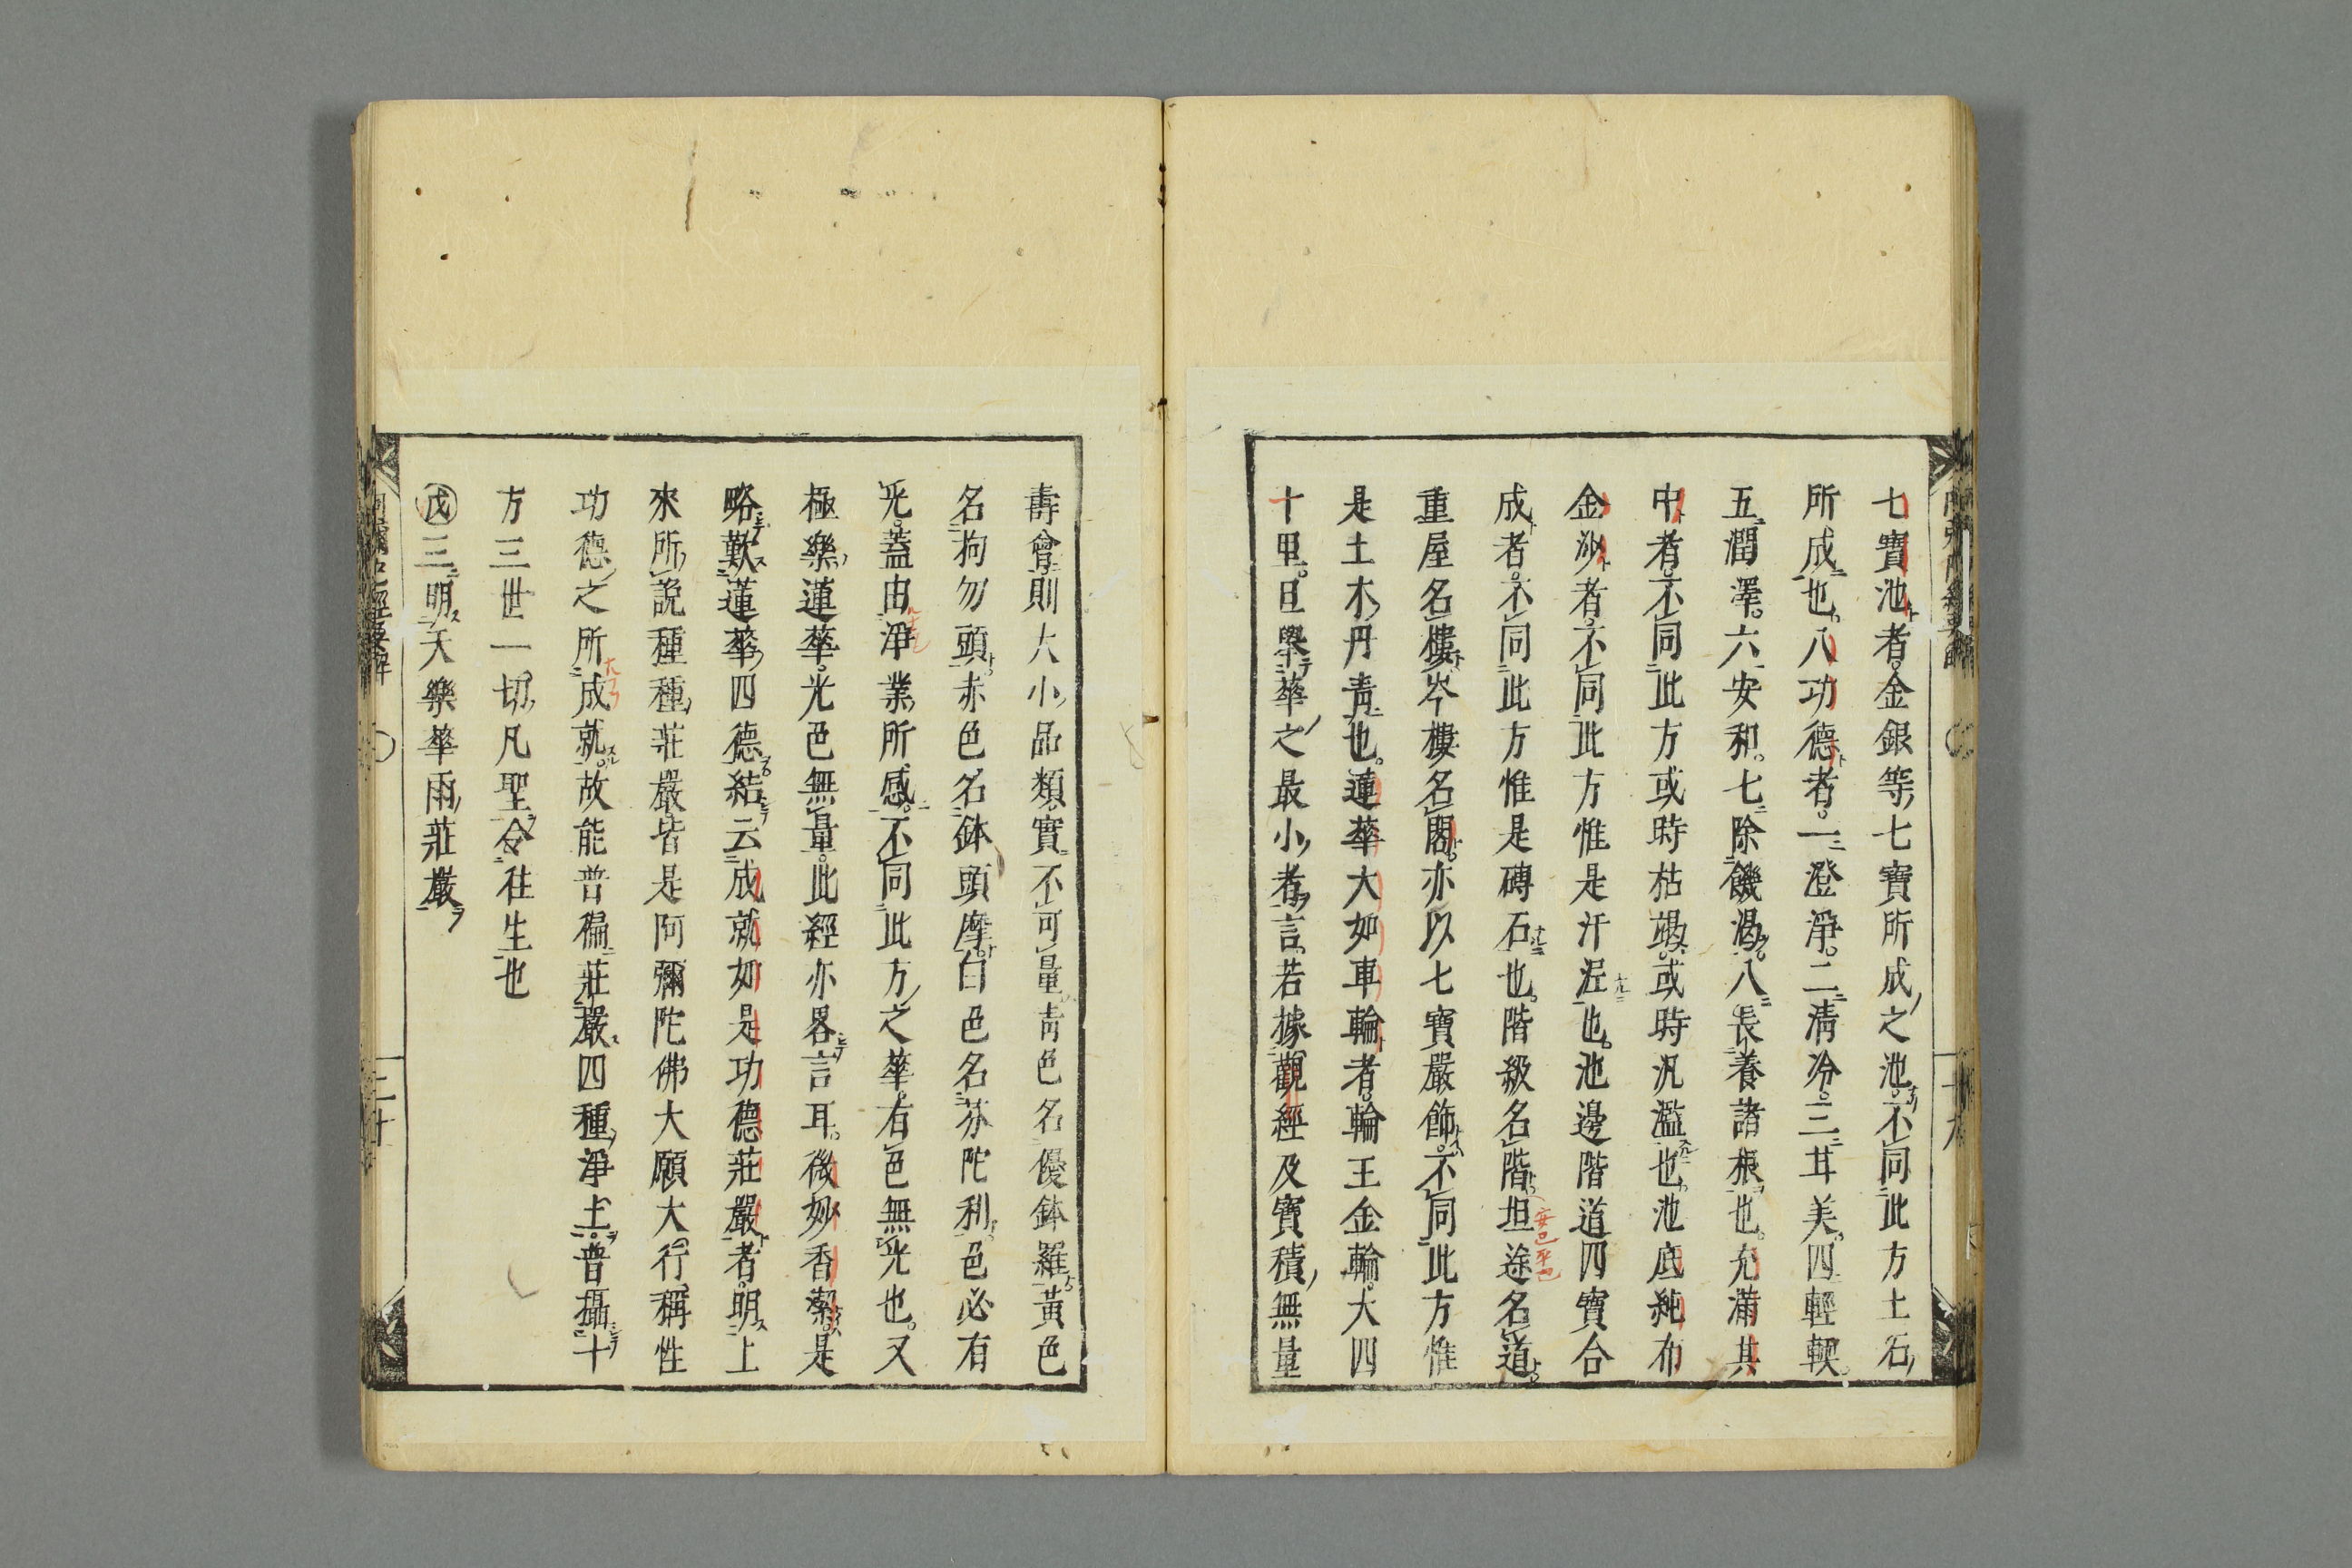 七寶池者金銀等七寶所成之池不同此方土石
所成也八功德者一澄淨二清冷三甘美四輕輭
五潤澤六安和七除饑渴八長養諸根也充滿其
中者不同此方或時枯竭或時汎濫也池底純布
金沙者不同此方惟是汙泥也池邊階道四寶合
成者不同此方惟是磚石也階級名階坦途名道
重屋名樓岑樓名閣亦以七寶嚴飾不同此方惟
是土木丹青也蓮華大如車輪者輪王金輪大四
十里且舉華之最小者言若據觀經及寶積無量
壽會則大小品類實不可量青色名優鉢羅黃色
名拘勿頭赤色名鉢頭摩白色名芬陀利色必有
光蓋由淨業所感不同此方之華有色無光也又
極樂蓮華光色無量此經亦畧言耳後妙香潔是
略歎蓮華四德結云成就如是功德莊嚴者明上
來所說種種莊嚴皆是阿彌陀佛大願大行稱性
功德之所成就故能普徧莊嚴四種淨土普攝十
方三世一切凡聖令往生也
戊三明天樂華雨莊嚴